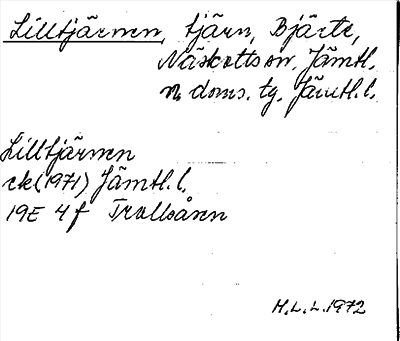 Lilltjärnen, tjärn, Bjärte,
Näskotts sn, Jämtl.
n. doms. tg, Jämtl. l.
Lilltjärnen
ek (1971) Jämtl. l.
19E 4f Trollsåsen
H.L.L. 1972